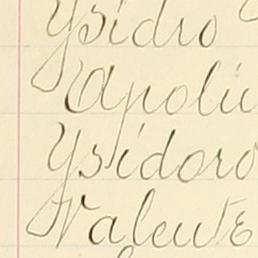 Ysidro
Apoli
Ysidoro
Valente